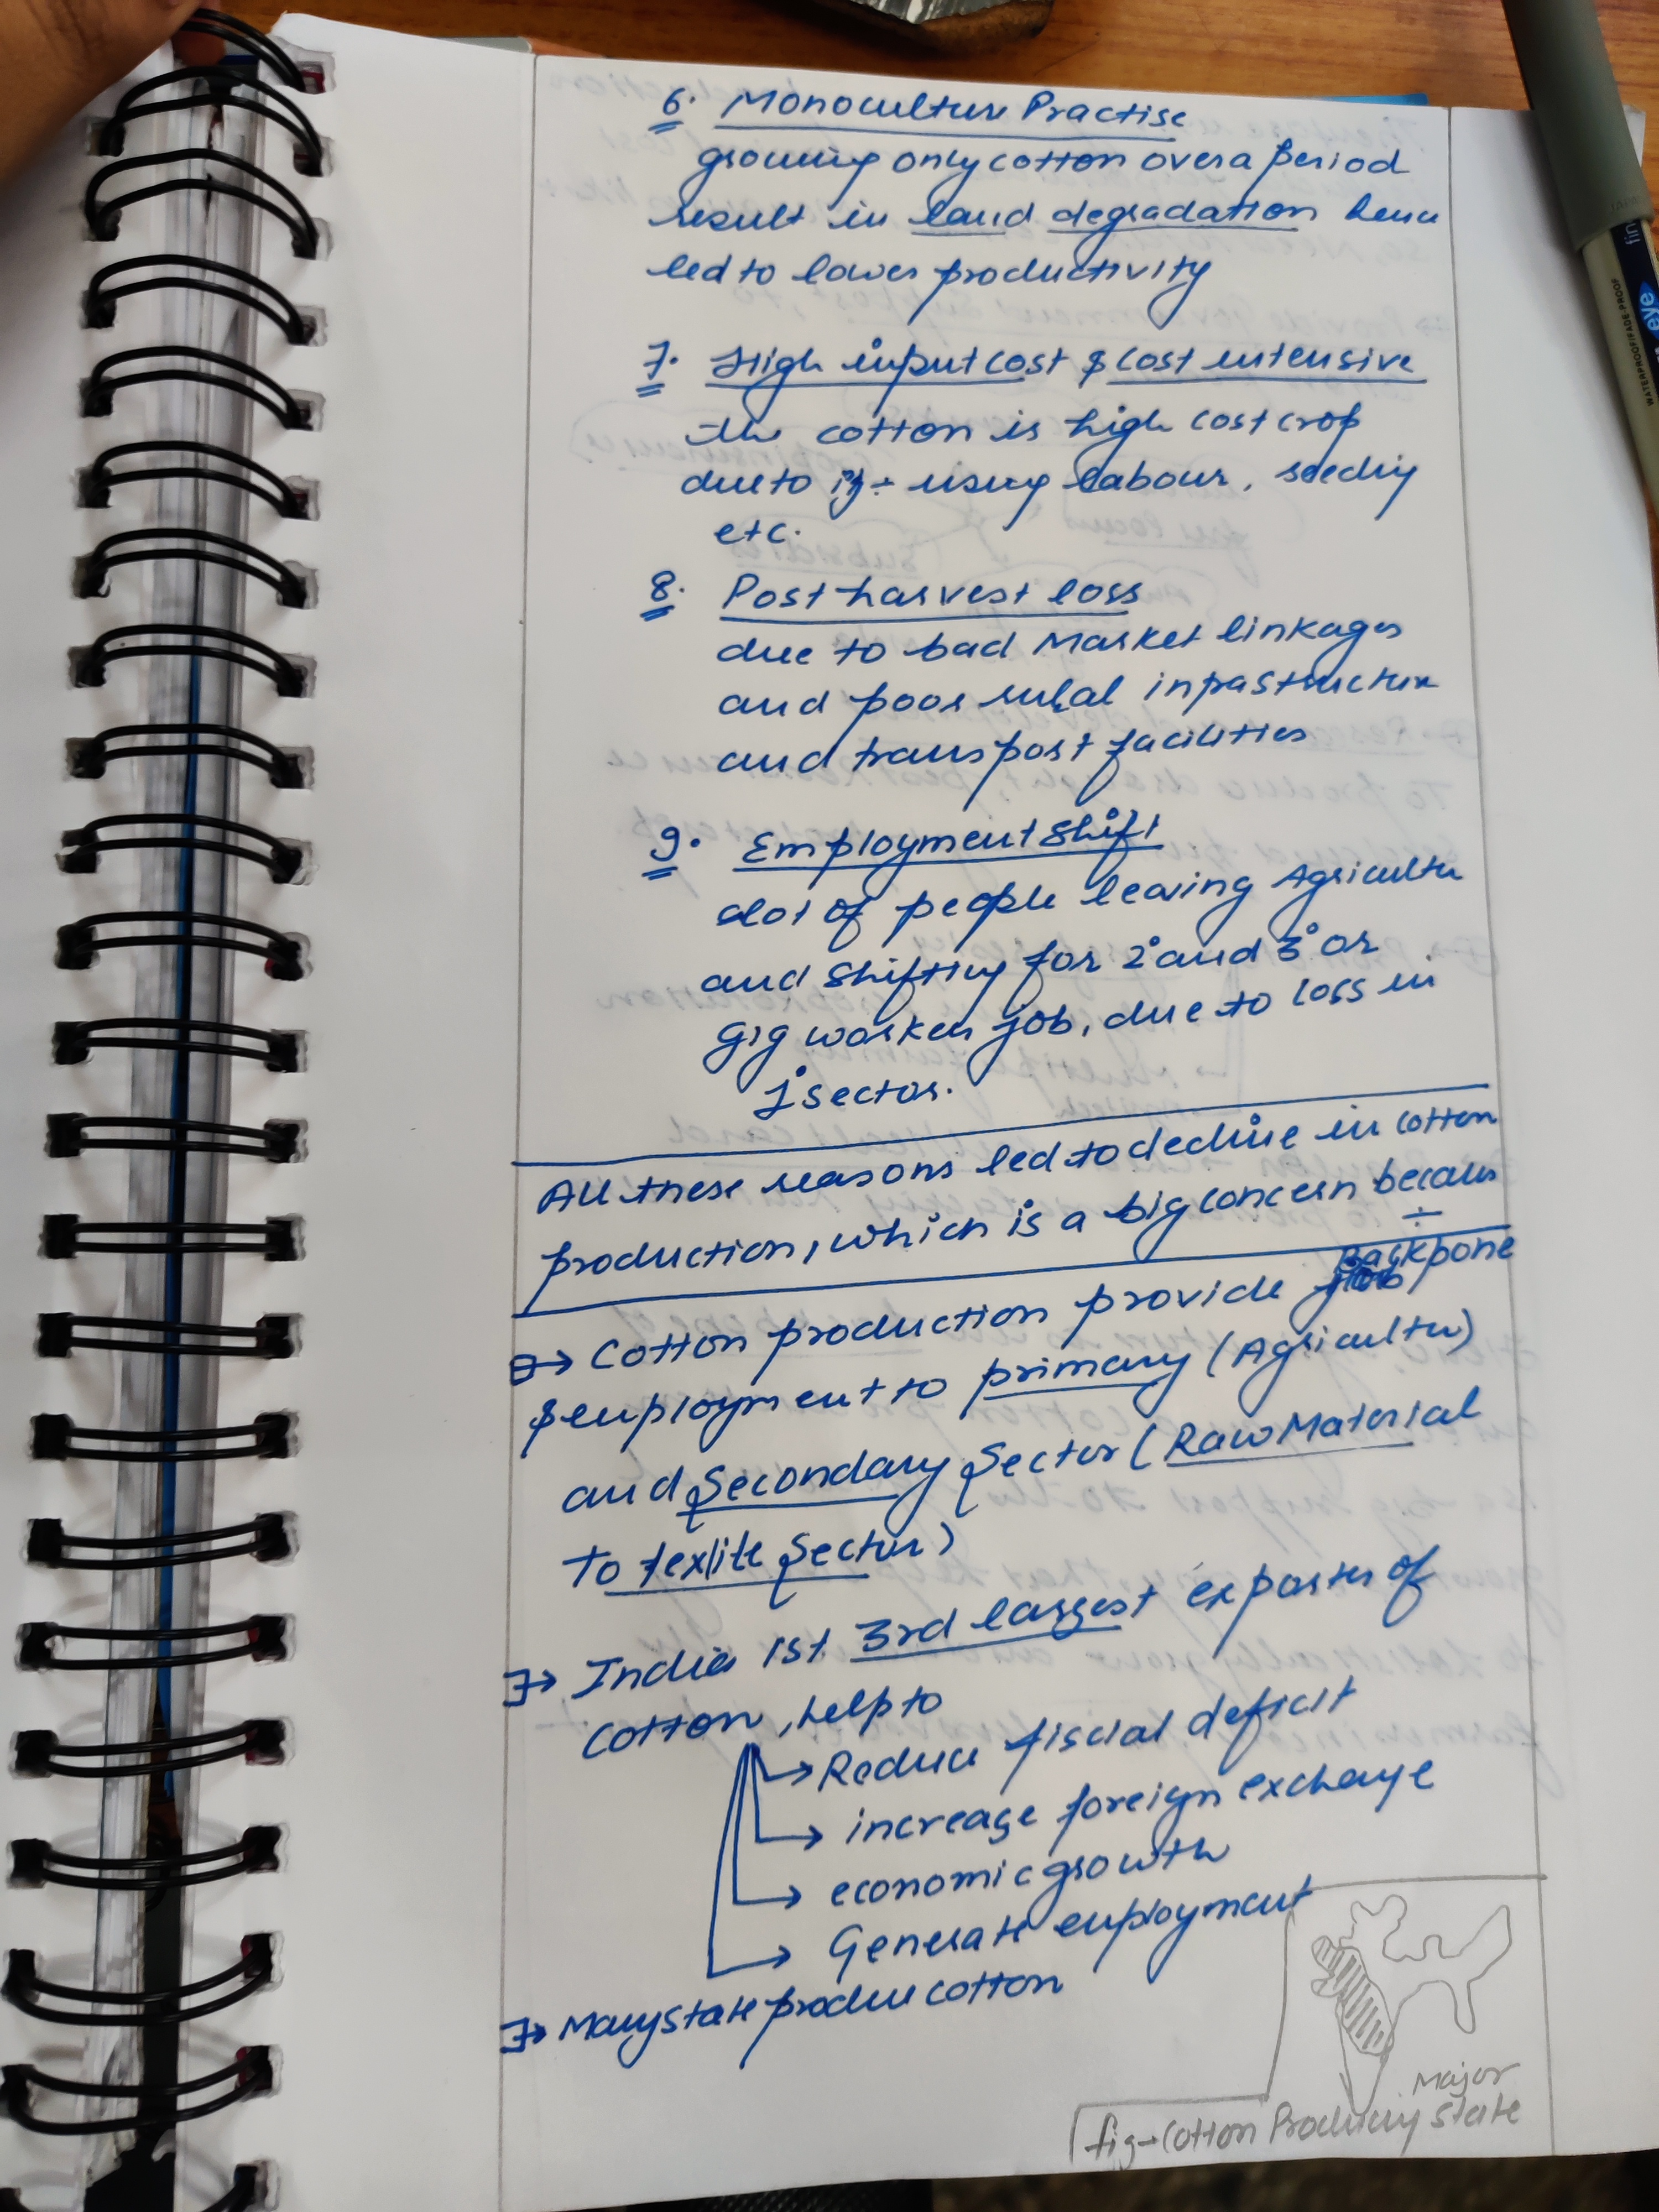 6. Monoculture Practise
growing only cotton over a period
result in land degradation hence
led to lower productivity
7. High input cost & cost intensive
the cotton is high cost crop
due to :- using labour, seeding
etc.
8. Post harvest loss
due to bad Market linkages
and poor rural inpastructure
and transport facilities
9. Employment Shift
alot of people leaving Agriculture
and Shifting for 2° and 3° or
gig worker job, due to loss in
1° sector.
All these reasons led to decline in cotton
production, which is a big concern because
÷
Backpone
⇒ Cotton production provide
& employment to primary (Agriculture)
and Secondary Sector (Raw Material
To textile Sector)
⇒ India ist 3rd largest exporter of
Cotton, help to
→ Reduce fiscial deficit
→ increase foreign exchange
→ economic growth
→ Generate employment
⇒ Many state produce cotton
Major
fig→ Cotton Producing State
WATERPROOF/FADE PROOF
eye
fin